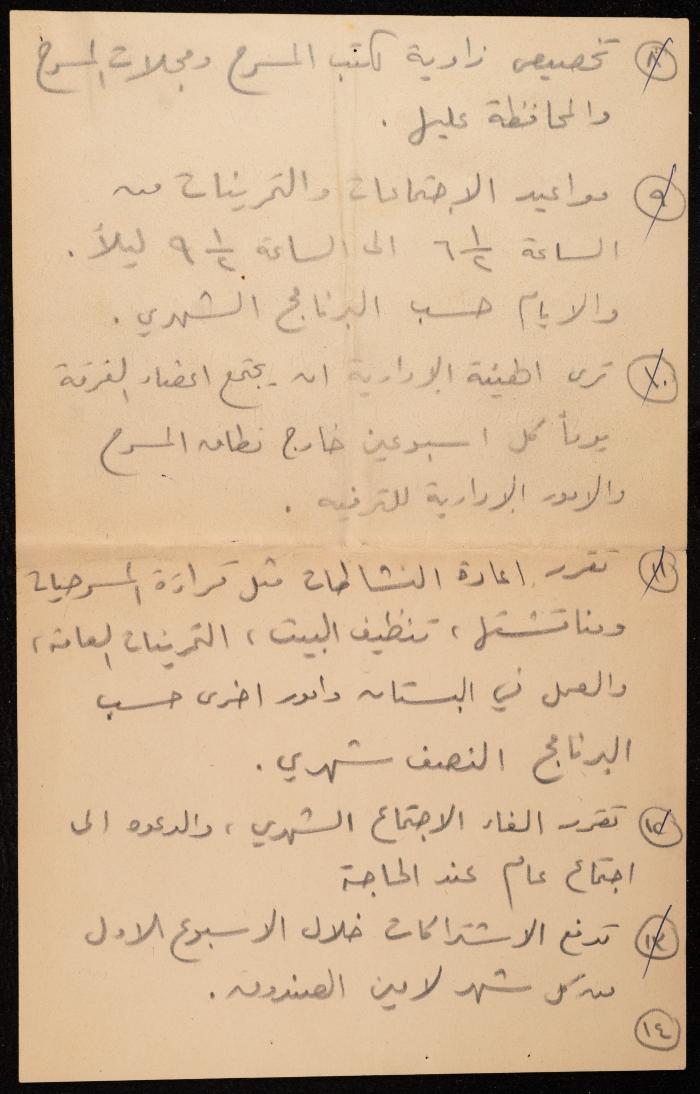 ٨ تخصيص زاوية لكتب المسرح ومجلات المسرح
والمحافظة عليها .
٩ مواعيد الاجتماعات والتمرينات من
الساعة ٦ ١/٢ الى الساعة ٩ ١/٢ ليلاً .
والايام حسب البرنامج الشهري .
١٠ ترى الهيئة الادارية ان يجتمع اعضاء الفرقة
يوماً كل اسبوعين خارج نطاق المسرح
والامور الادارية للترفيه .
١١ تقرر اعادة النشاطات مثل قراءة المسرحيات
ومناقشتها ، تنظيف البيت ، التمرينات العامة ،
والعمل في البستان وامور اخرى حسب
البرنامج النصف شهري .
١٢ تقرر الغاء الاجتماع الشهري ، والدعوه الى
اجتماع عام عند الحاجة
١٣ تدفع الاشتراكات خلال الاسبوع الاول
من كل شهر لامين الصندوق .
١٤